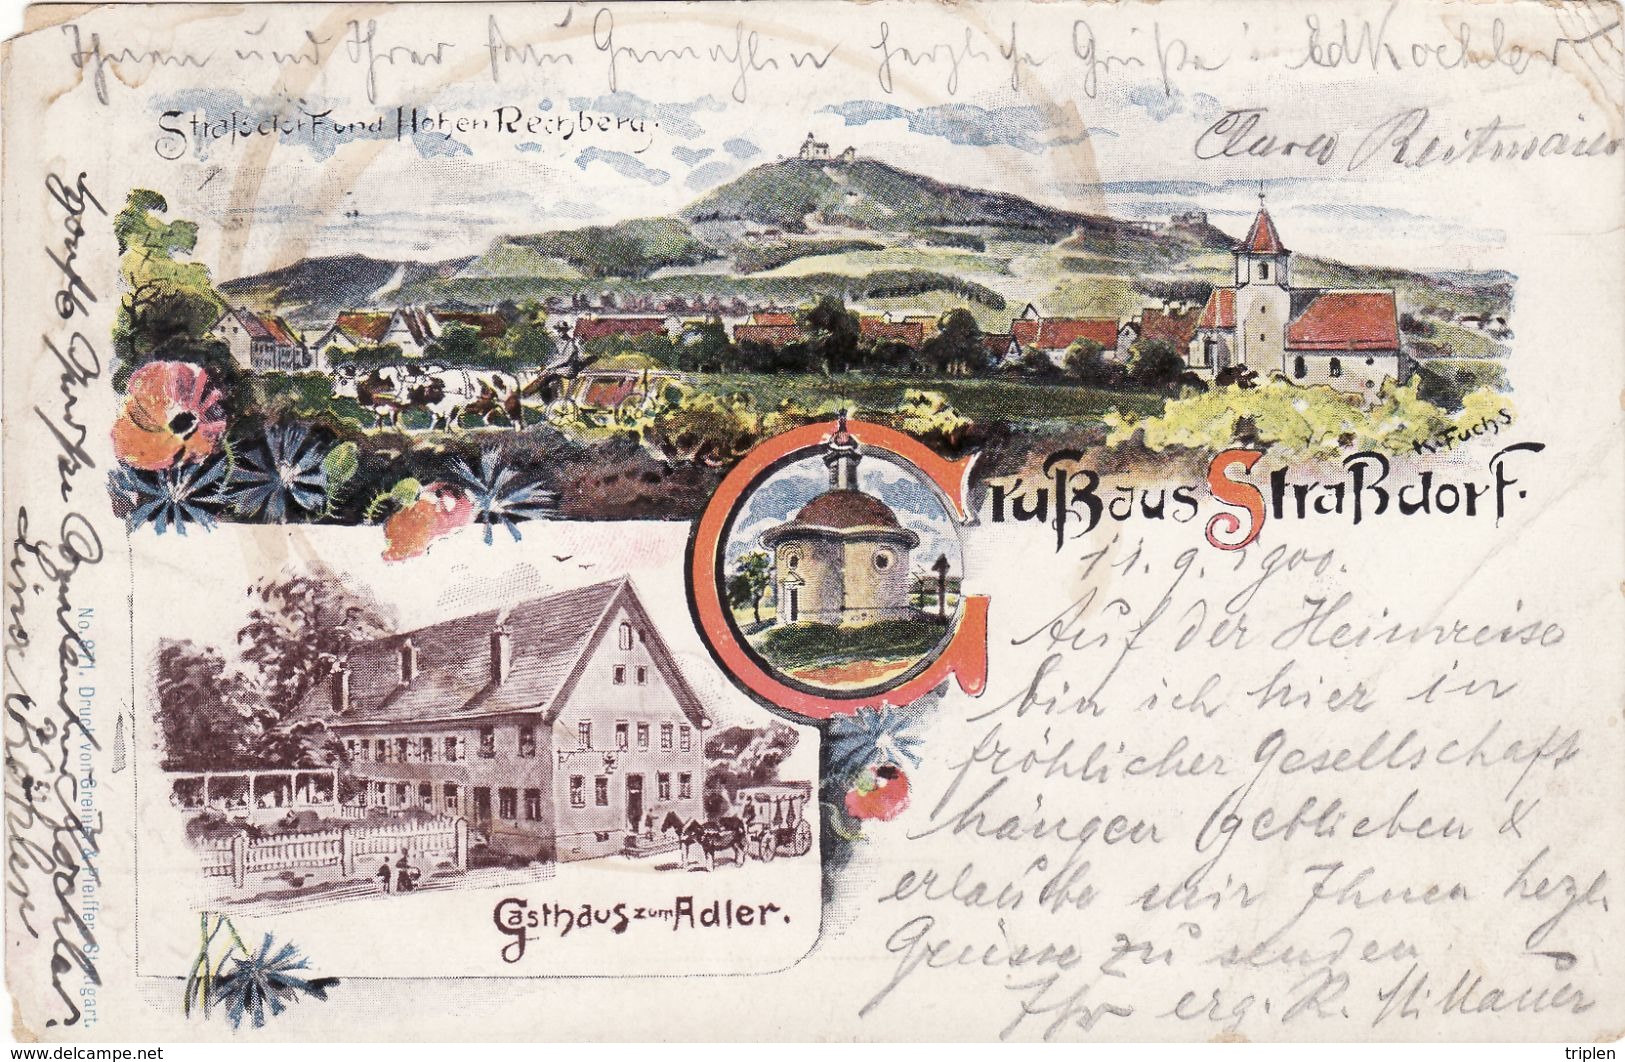 Ihnen und Ihrer Frau Gemahlin herzliche Grüße EdKoehler
Clara Reitmaier
Straßdorf und Hohen Rechberg.
K. Fuchs
Gruß aus Straßdorf.
11. 9. 1900.
Auf der Heimreise
bin ich hier in
fröhlicher Gesellschaft
hängen geblieben &
erlaube mir Ihnen herzl.
Grüsse zu senden
Ihr erg. R. Mauer
Gasthaus zum Adler.
No. 871. Druck von Greiner & Pfeiffer, Stuttgart.
Lina
www.delcampe.net
triplen